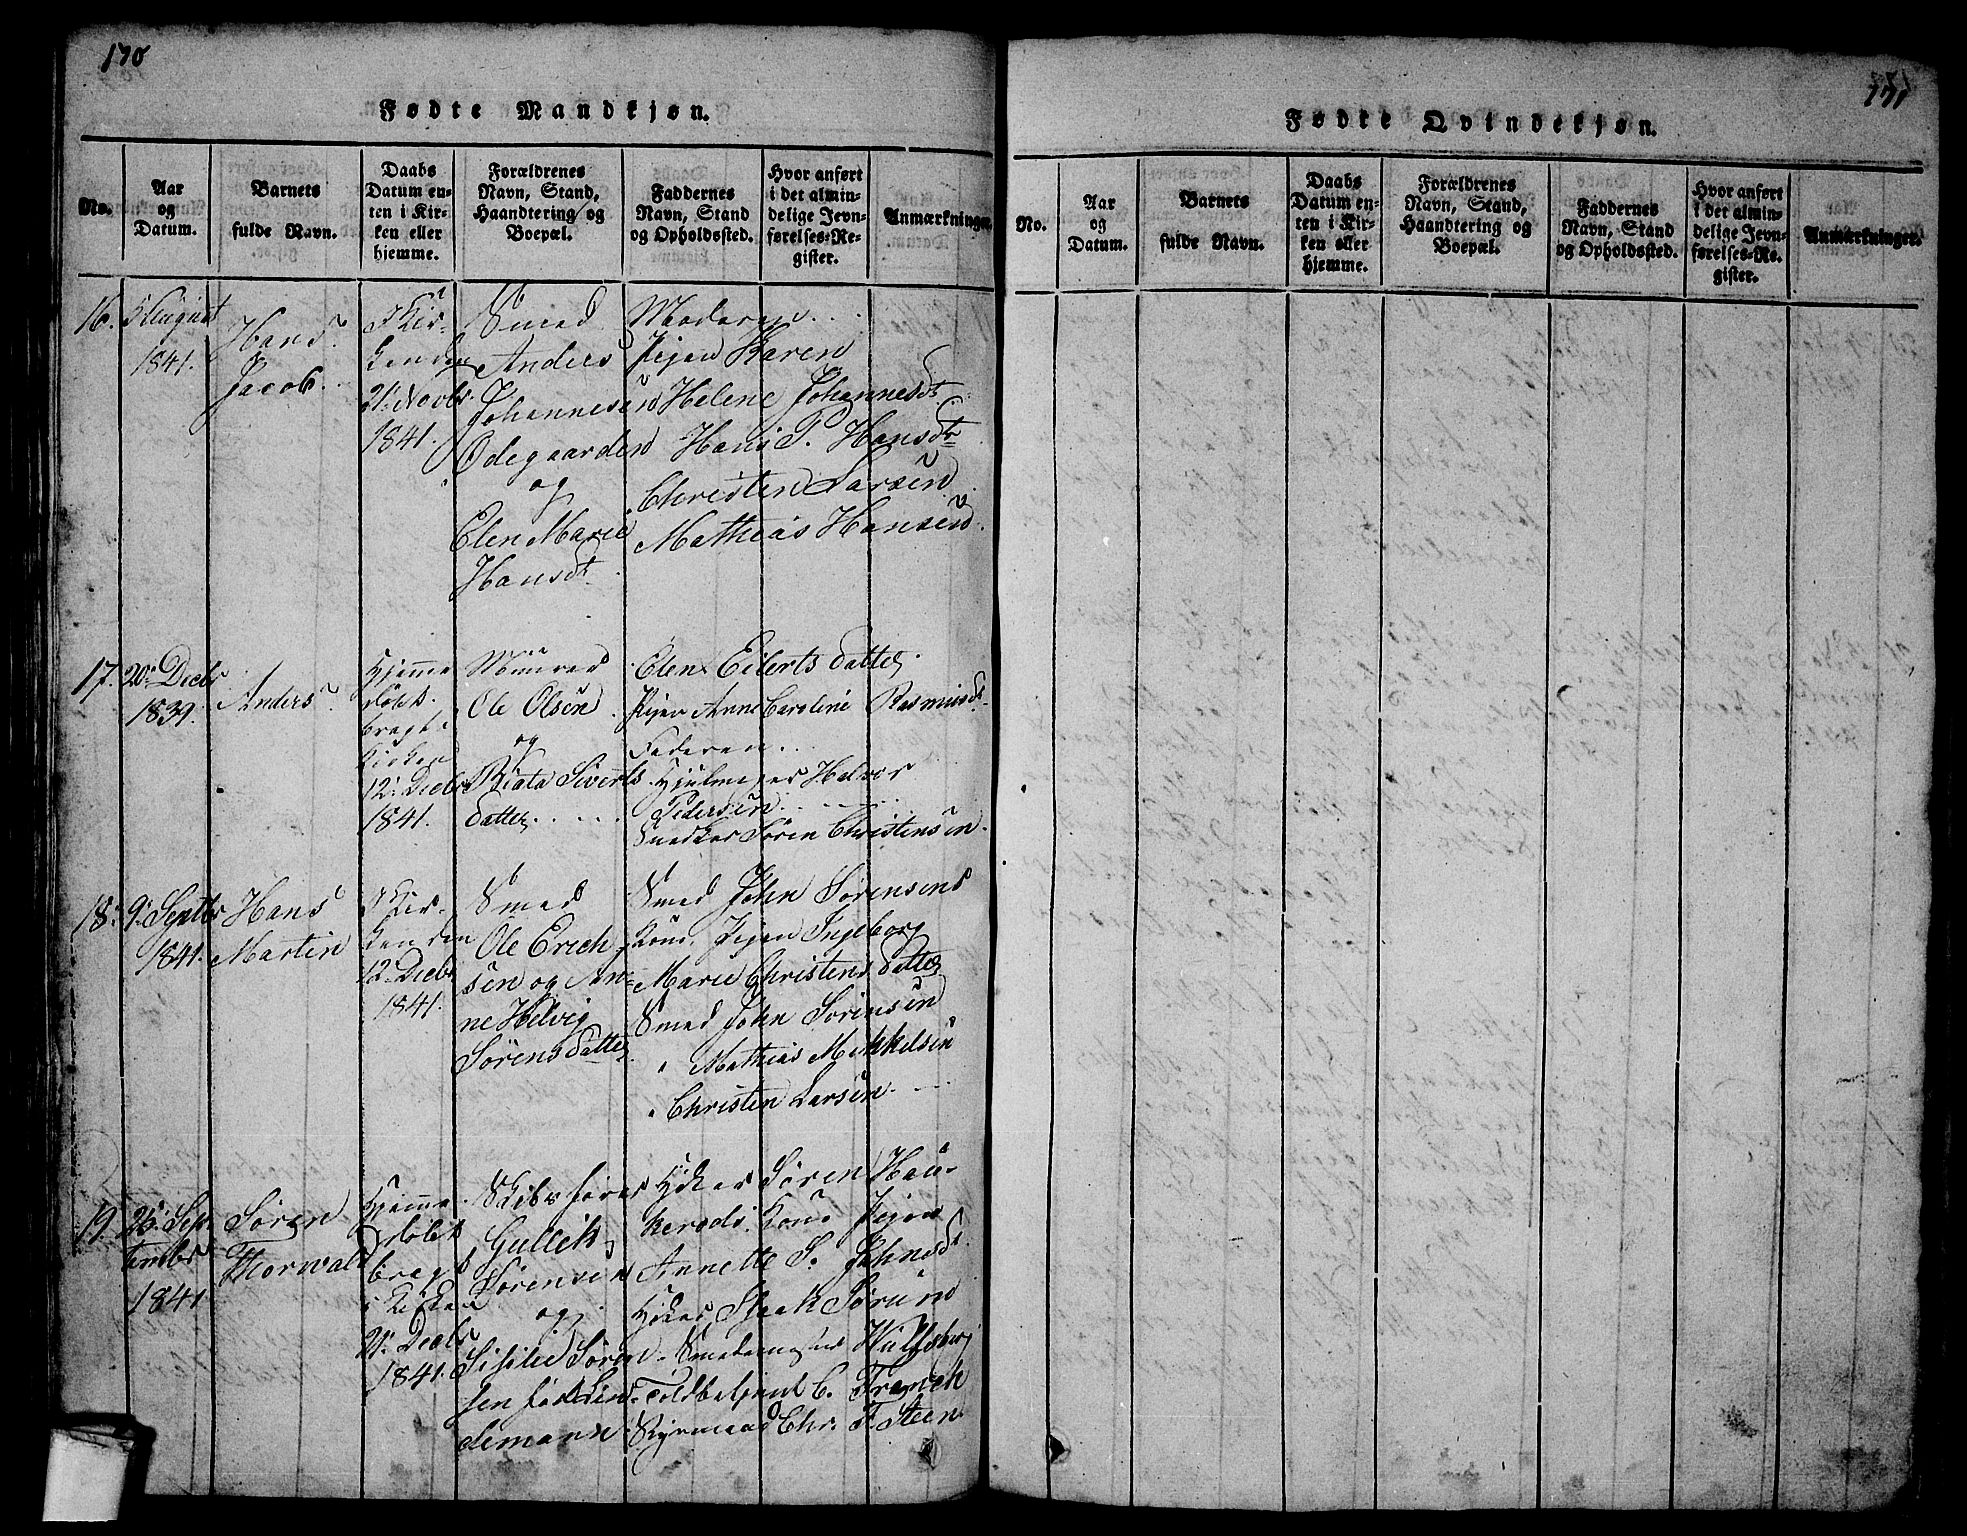 170
Fødte Mandkjøn.
No.
Aar
og
Datum.
Barnets
fulde Navn.
Daabs
Datum en-
ten i Kir-
ken eller
hjemme.
Forældrenes
Navn, Stand,
Haandtering og
Boepæl.
Faddernes
Navn, Stand
og Opholdssted.
Hvor anført
i det almin-
delige Jevn-
førelses-Re-
gister.
Anmærkninger.
16.
5 August
1841.
Hans
Jacob.
I Kir-
ken den
21 Novbr
1841.
Smed
Anders
Johannesen
Ødegaarden
og
Elen Marie
Hansdt.
Moderen
Pigen Karen
Helene Johannesdt.
Hans P. Hansdtr
Christen Larsen
Mathias Hansen.
17.
20 Decbr
1839.
Anders
Hjemme
døbt
bragt
Kirken
12 Decbr
1841.
Muurer
Ole Olsen
og
Beata Siverts
datter.
Elen Eilerts datter.
Pigen Anne Caroline Rasmusdt.
Faderen
Hjulmager Halvor
Pedersen
Snedker Søren Christensen.
18.
9 Septbr
1841.
Hans
Martin
I Kir-
ken den
12 Decbr
1841.
Smed
Ole Erich
sen og An-
ne Helvig
Sørensdatter
Smed John Sørensens
Kone, Pigen Ingeborg
Marie Christensdatter
Smed John Sørensen
" Mathias Mikkelsen
" Christen Larsen
19.
25 Sep-
tembr
1841
Søren
Thorwald
Hjemme
døbt
bragt
i Kirken
21 Decbr
1841.
Skibsfører
Gullik
Sørensen
og
Sisilie Søren
sen født Lin-
demann.
Søren Hau-
kerøds Kone Pigen
Annette S. Johnsdt.
Isaak Sørum
Wulfsberg
Toldbetjent C. Franck
Styrmand Chr. F. Steen
171
Fødte Qvindekjøn.
No.
Aar
og
Datum.
Barnets
fulde Navn.
Daabs
Datum en-
ten i Kir-
ken eller
hjemme.
Forældrenes
Navn, Stand,
Haandtering og
Boepæl.
Faddernes
Navn, Stand
og Opholdssted.
Hvor anført
i det almin-
delige Jevn-
førelses-Re-
gister.
Anmærkninger.